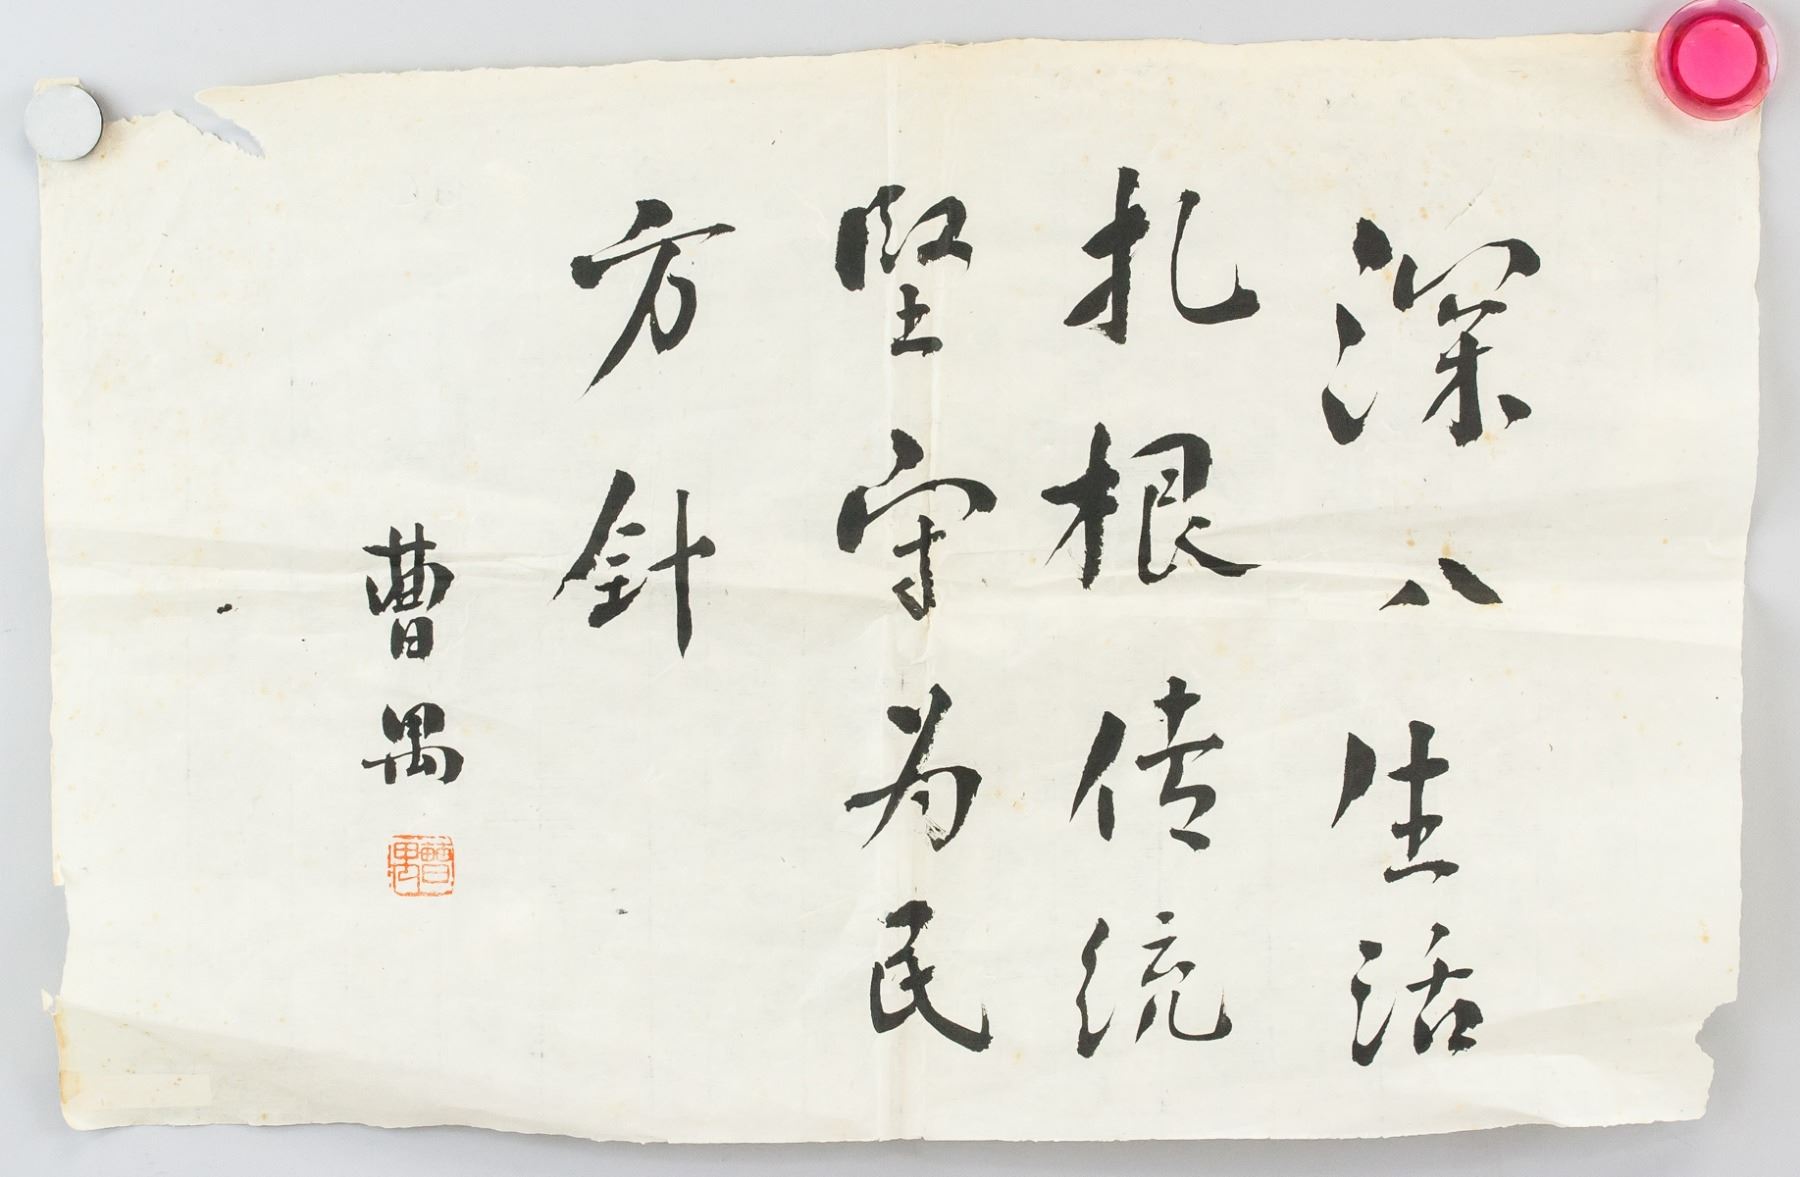 深入生活
扎根传统
坚守为民
方针
曹禺
曹禺